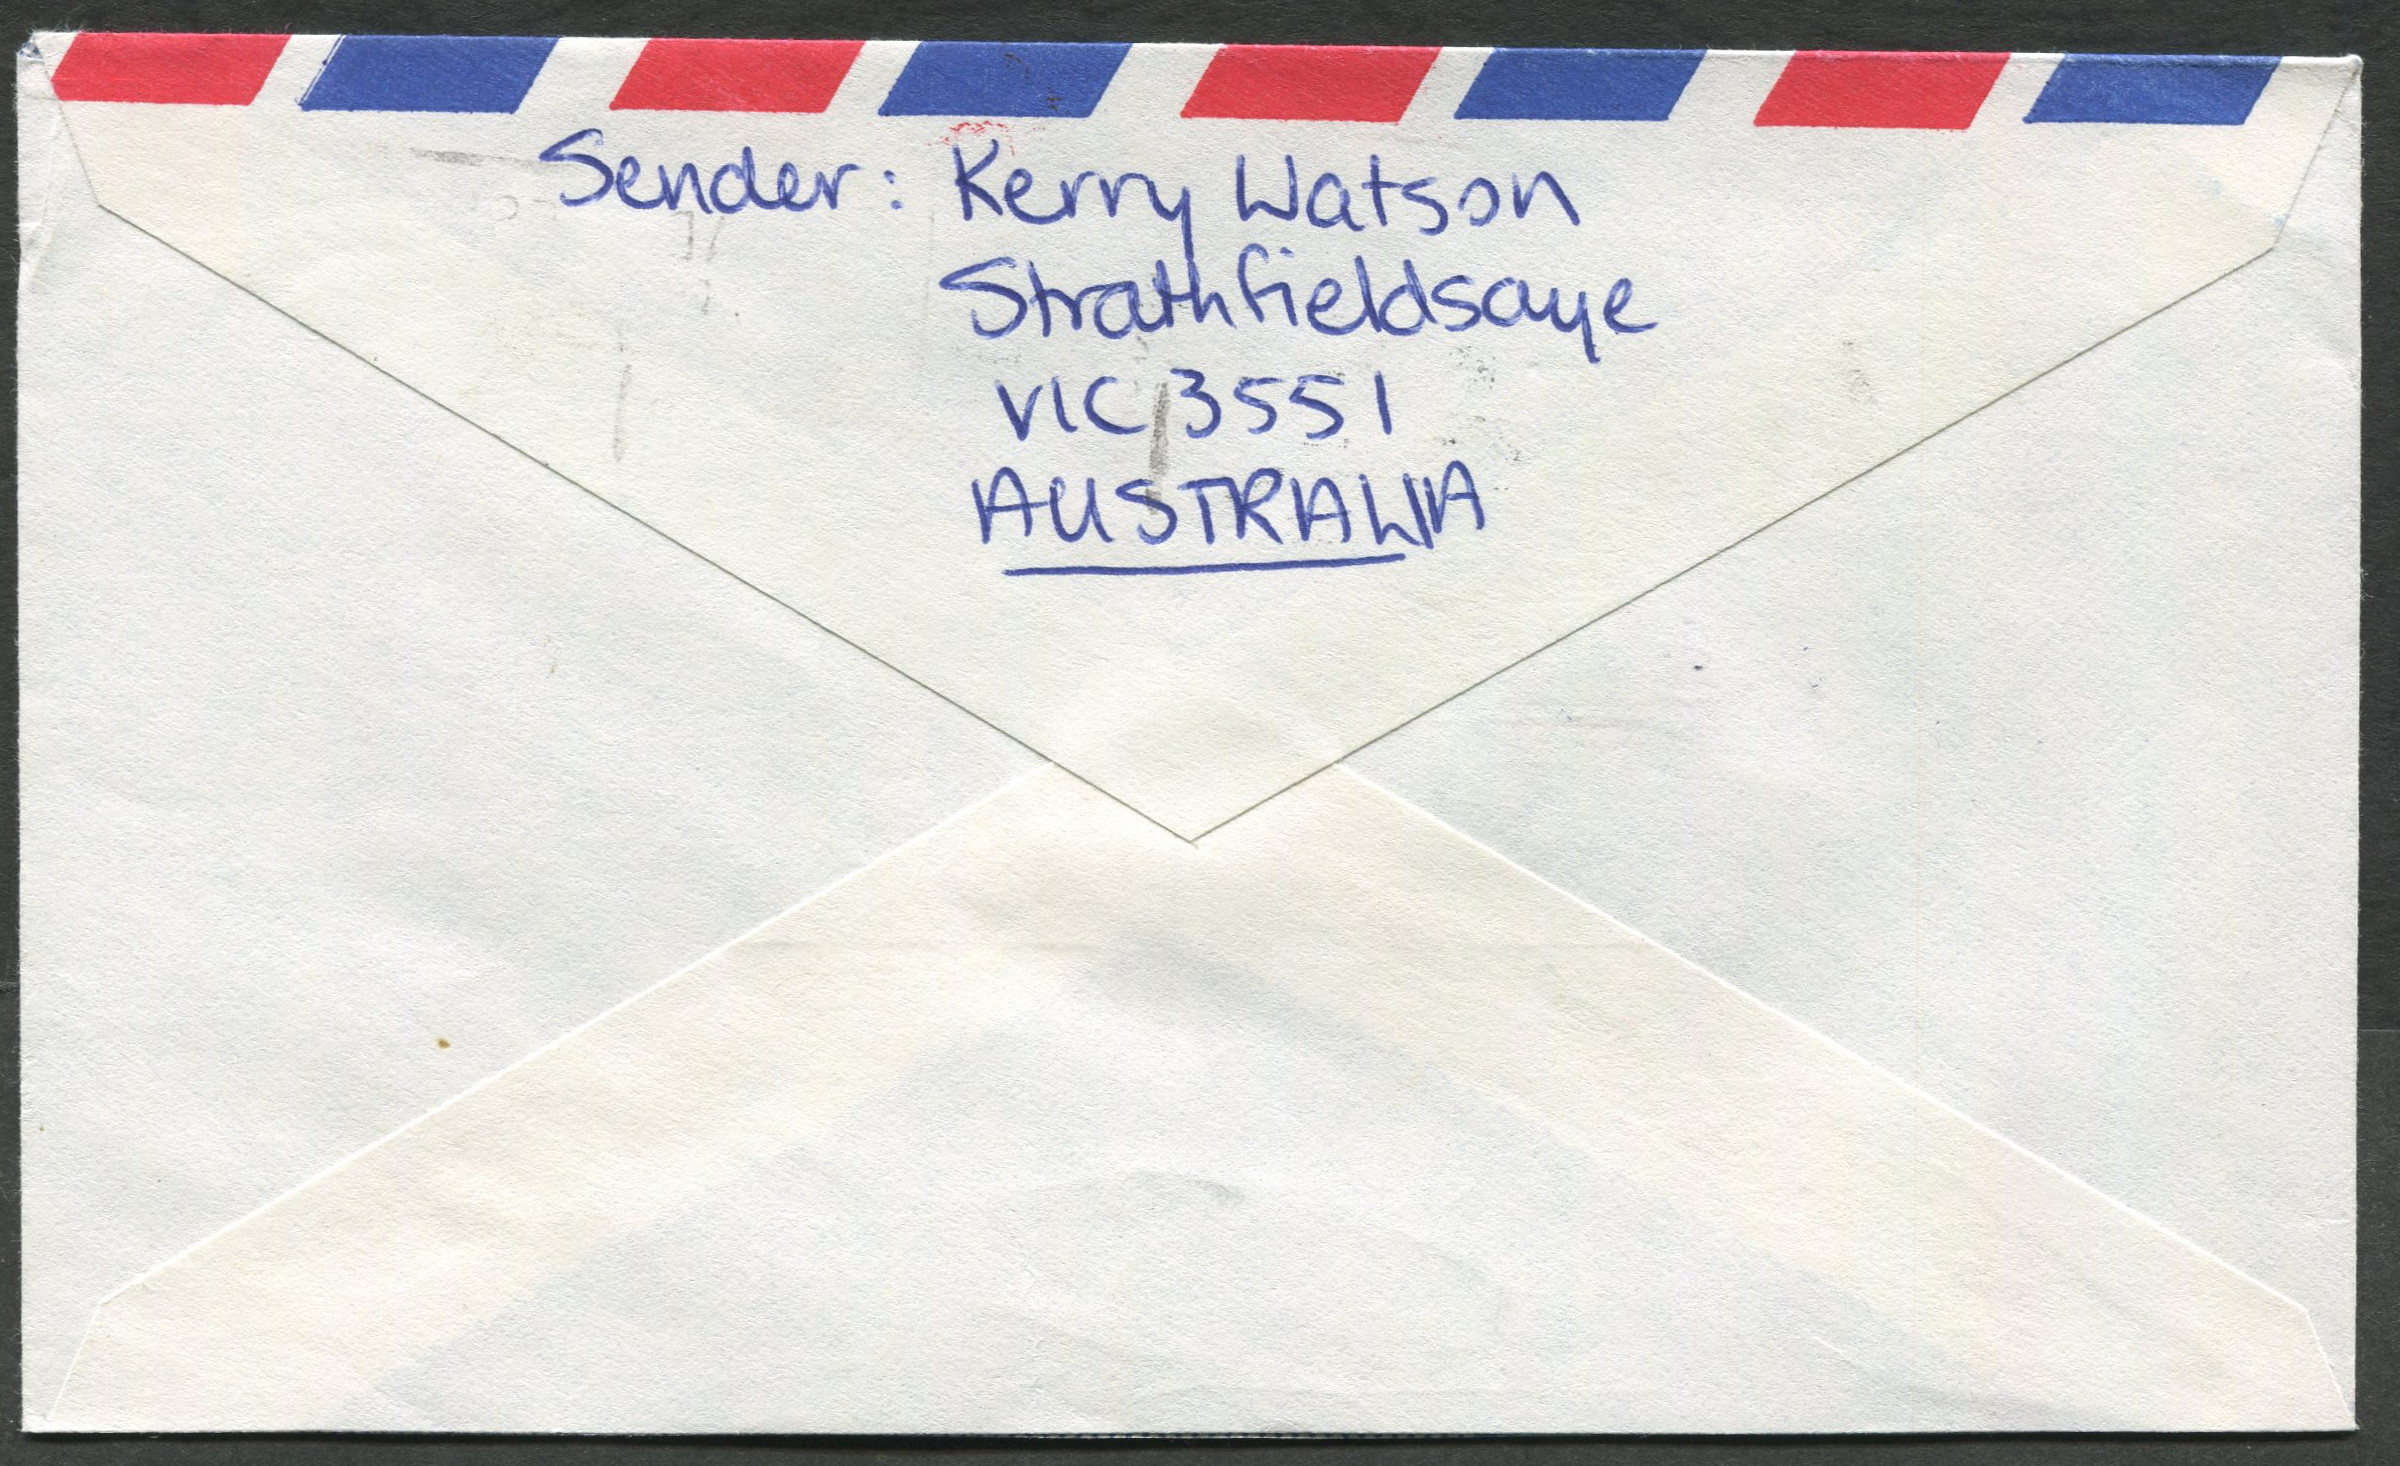 Sender: Kerry Watson
Strathfieldsaye
VIC 3551
AUSTRALIA